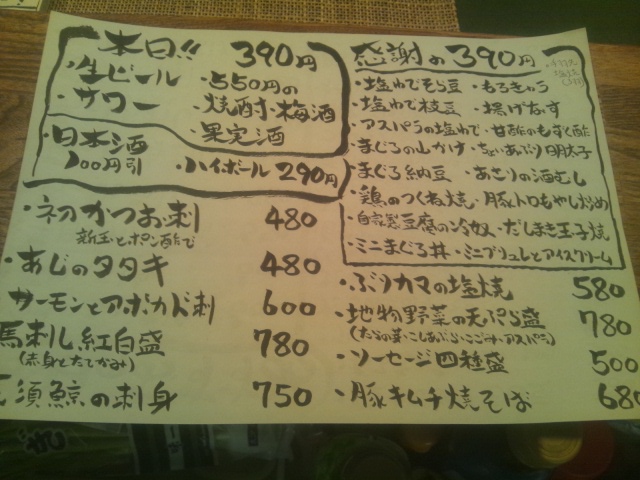 本日!! 390円
・生ビール ・550円の
・サワー 焼酎・梅酒
・果実酒
・日本酒
100円引
・ハイボール 290円
・初かつお刺 480
新玉とポン酢で
・あじのタタキ 480
サーモンとアボカド刺 600
馬刺し紅白盛 780
(赤身とたてがみ)
須鯨の刺身 750
感謝の390円
・塩ゆでそら豆 ・もろきゅう
・塩ゆで枝豆 ・揚げなす
・アスパラの塩ゆで ・甘酢のもずく酢
・まぐろの山かけ ・ちょいあぶり明太子
・まぐろ納豆 ・あさりの酒むし
・鶏のつくね焼 ・豚トロもやし炒め
・自家製豆腐の冷奴 ・だしまき玉子焼
・ミニまぐろ丼 ・ミニブリュレとアイスクリーム
・ぶりカマの塩焼 580
・地物野菜の天ぷら盛 780
(たらの芽・こしあぶら・こごみ・アスパラ)
・ソーセージ四種盛 500
・豚キムチ焼そば 680